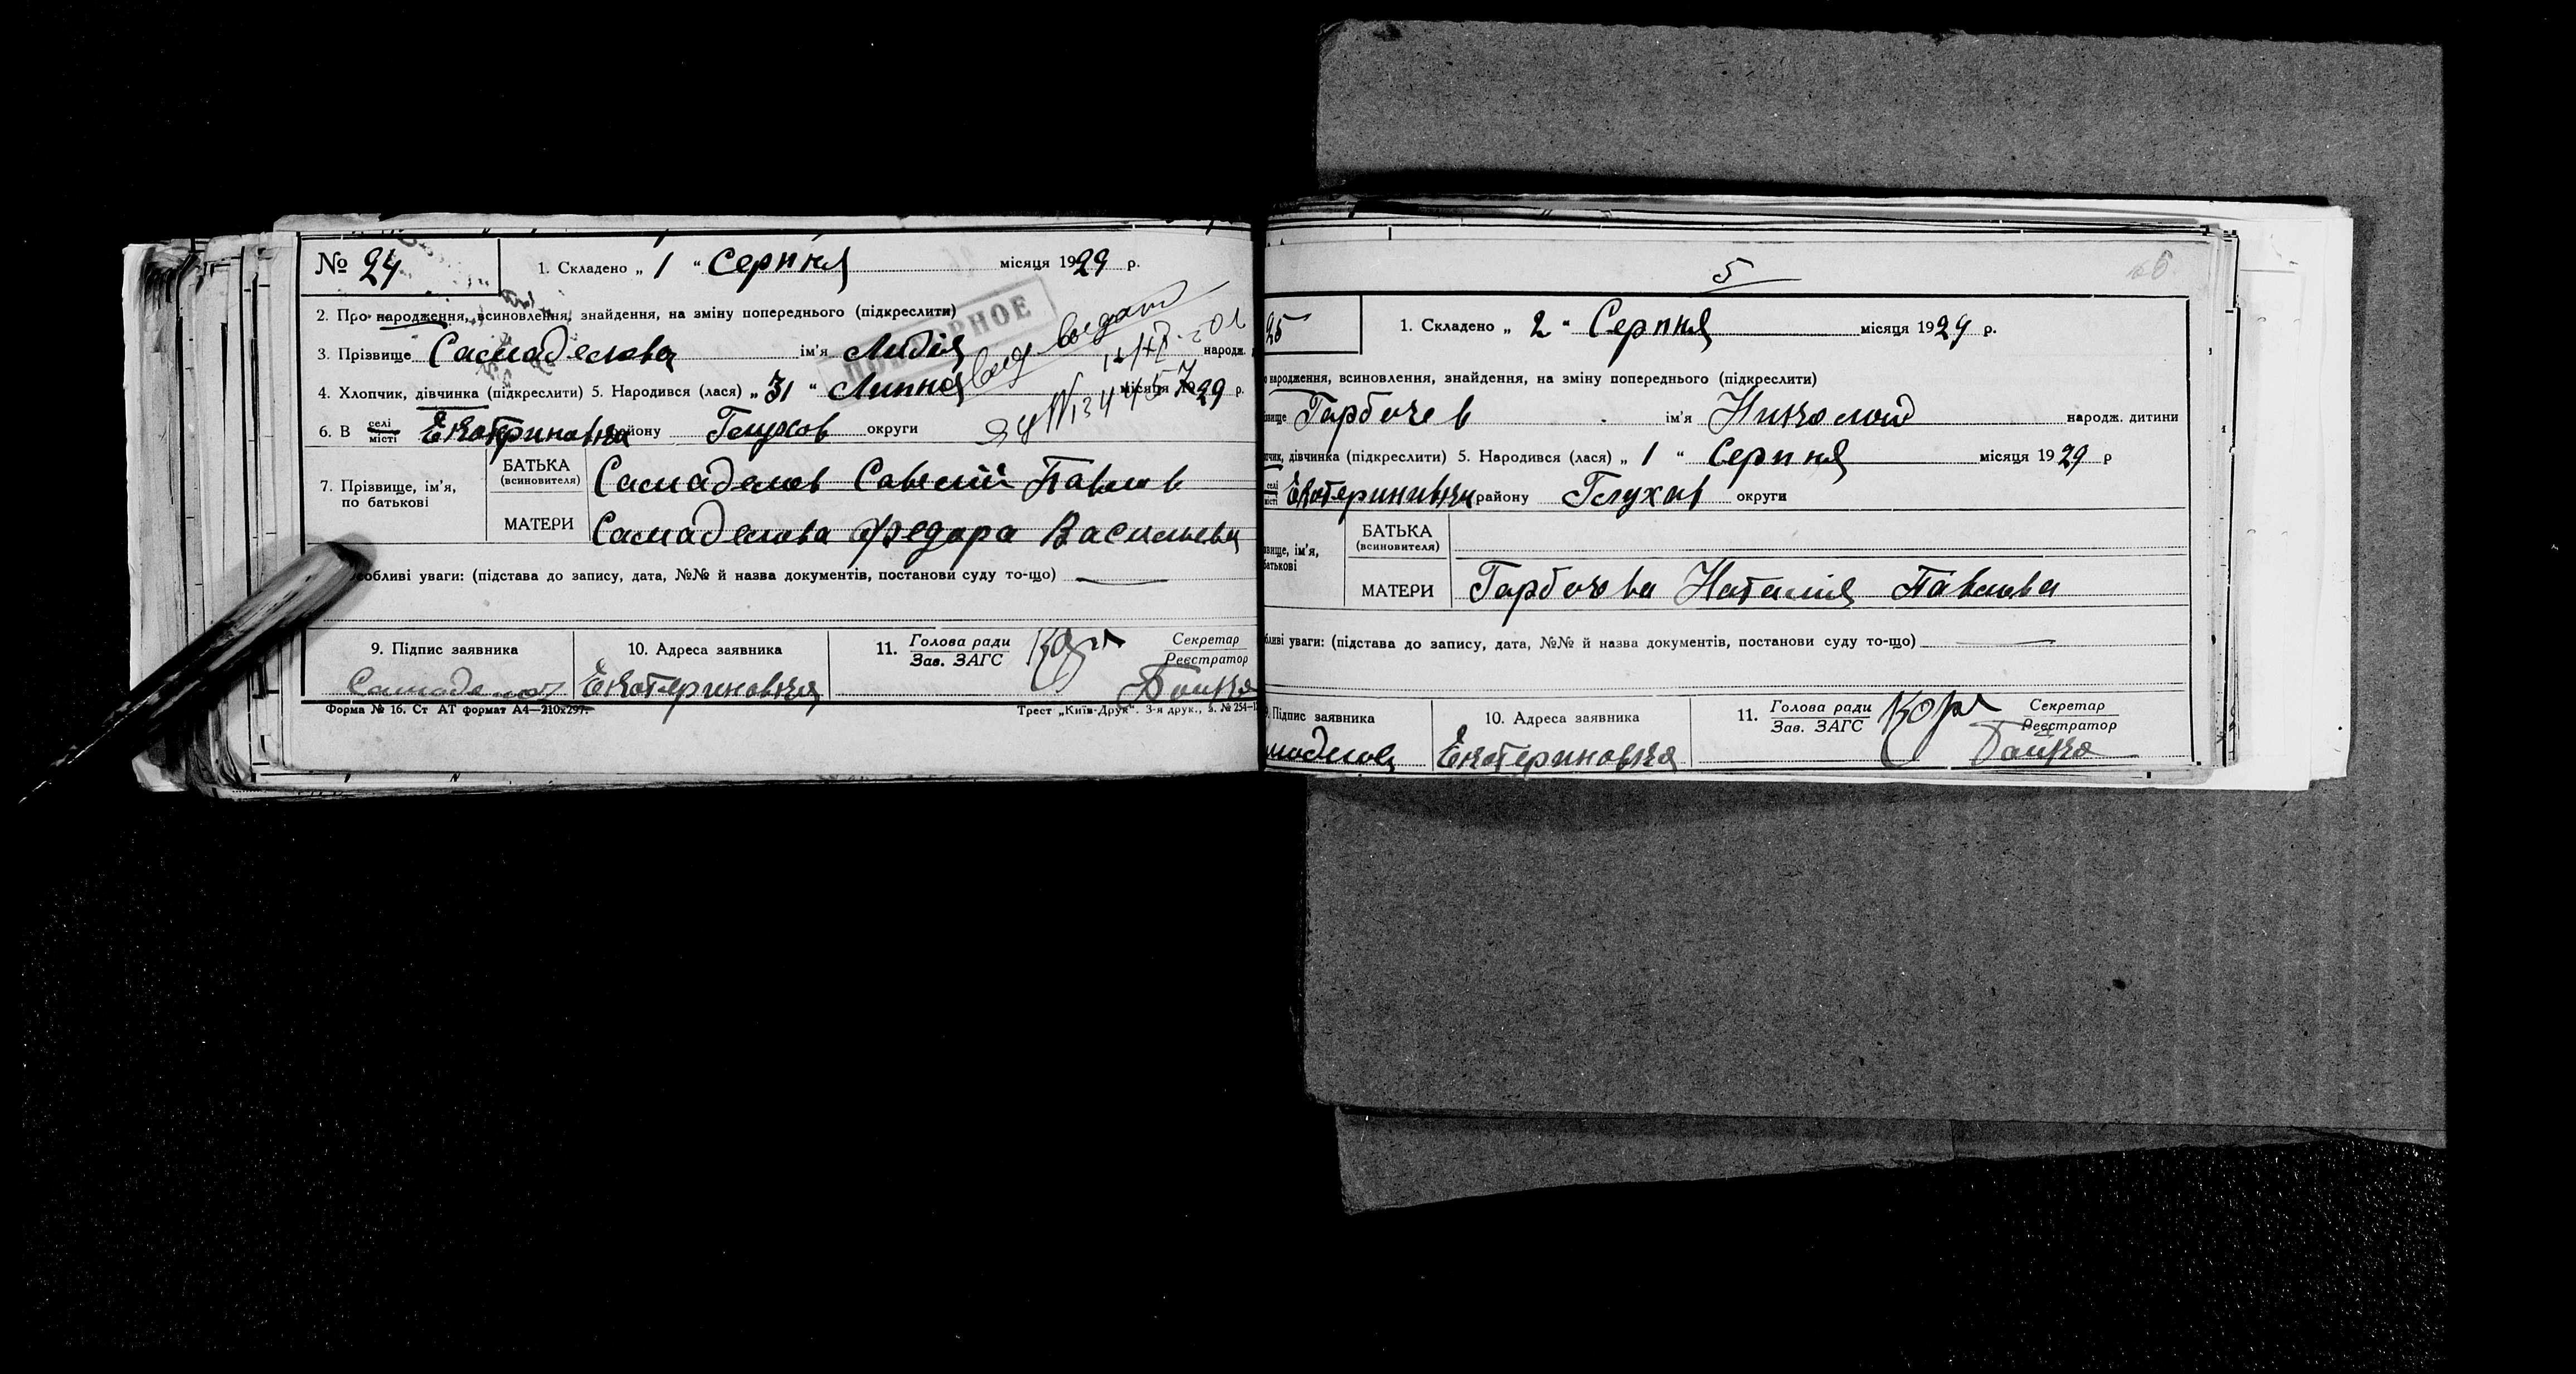 № 24
1. Складено „ 1 “ Серпня місяця 1929 р.
2. Про народження, всиновлення, знайдення, на зміну попереднього (підкреслити)
ПОВТОРНОЕ
3. Прізвище Самаделова ім'я Лидія народж.
4. Хлопчик, дівчинка (підкреслити) 5. Народився (лася) „ 31 “ Липня місяця 1929 р.
6. В селі місті Екатриновка району Глухов округи
7. Прізвище, ім'я, по батькові
БАТЬКА (всиновителя) Самаделов Савелій Павлов
МАТЕРИ Самаделова Федора Васильева
особливі уваги: (підстава до запису, дата, №№ й назва документів, постанови суду то-що)
9. Підпис заявника
10. Адреса заявника Екатериновка
11. Голова ради Зав. ЗАГС
Секретар Реєстратор Бойко
Форма № 16. Ст АТ формат А4—210х297.
Трест „Київ-Друк“. 3-я друк., з. № 254—1
5
25
1. Складено „ 2 “ Серпня місяця 1929 р.
народження, всиновлення, знайдення, на зміну попереднього (підкреслити)
Горбачев ім'я Николай народж. дитини
чик, дівчинка (підкреслити) 5. Народився (лася) „ 1 “ Серпня місяця 1929 р
селі місті Екатериновка району Глухов округи
вище, ім'я, батькові
БАТЬКА (всиновителя)
МАТЕРИ Горбачева Наталия Павлова
бливі уваги: (підстава до запису, дата, №№ й назва документів, постанови суду то-що)
9. Підпис заявника
10. Адреса заявника Екатериновка
11. Голова ради Зав. ЗАГС
Секретар Реєстратор Бойко